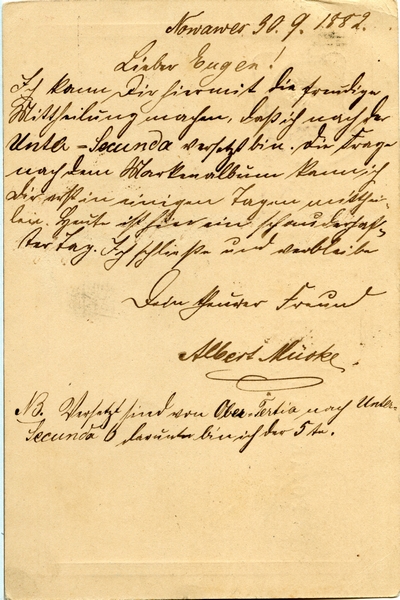 Nowawes 30. 9. 1882.
Lieber Eugen!
Ich kann Dir hiermit die freudige
Mittheilung machen, daß ich nach der
Unter-Secunda versetzt bin. Die Frage
nach dem Markenalbum kann ich
Dir erst in einigen Tagen mitthei-
len. Heute ist hier ein schauderhaf-
ter Tag. Ich schließe und verbleibe
Dein theurer Freund
Albert Mücke.
NB. Versetzt sind von Ober-Tertia nach Unter-
Secunda 6 darunter bin ich der 5te.